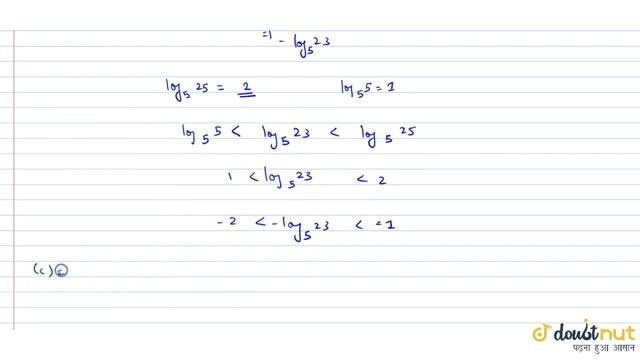 =1 - log₅23
log₅25 = 2 log₅5 = 1
log₅5 < log₅23 < log₅25
1 < log₅23 < 2
-2 < -log₅23 < = 1
(c)
doubtnut
पढ़ना हुआ आसान